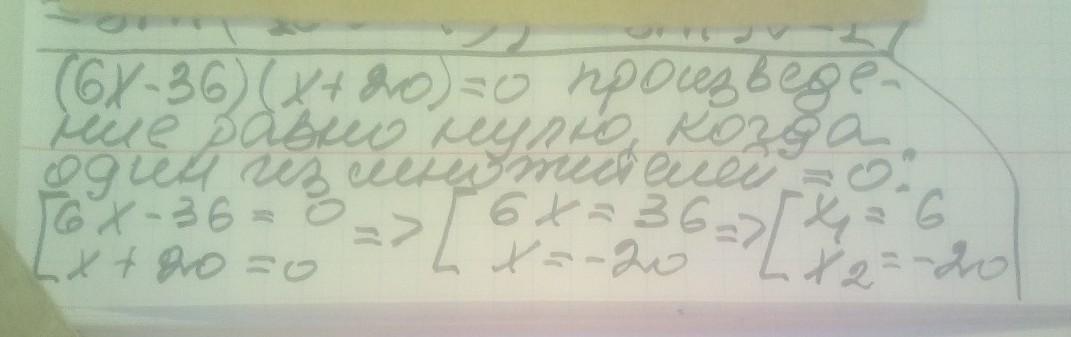 (6x-36)(x+20)=0 произведе-
ние равно нулю, когда
один из множителей =0:
[6x-36=0 => [6x=36 => [x₁=6
x+20=0 x=-20 x₂=-20